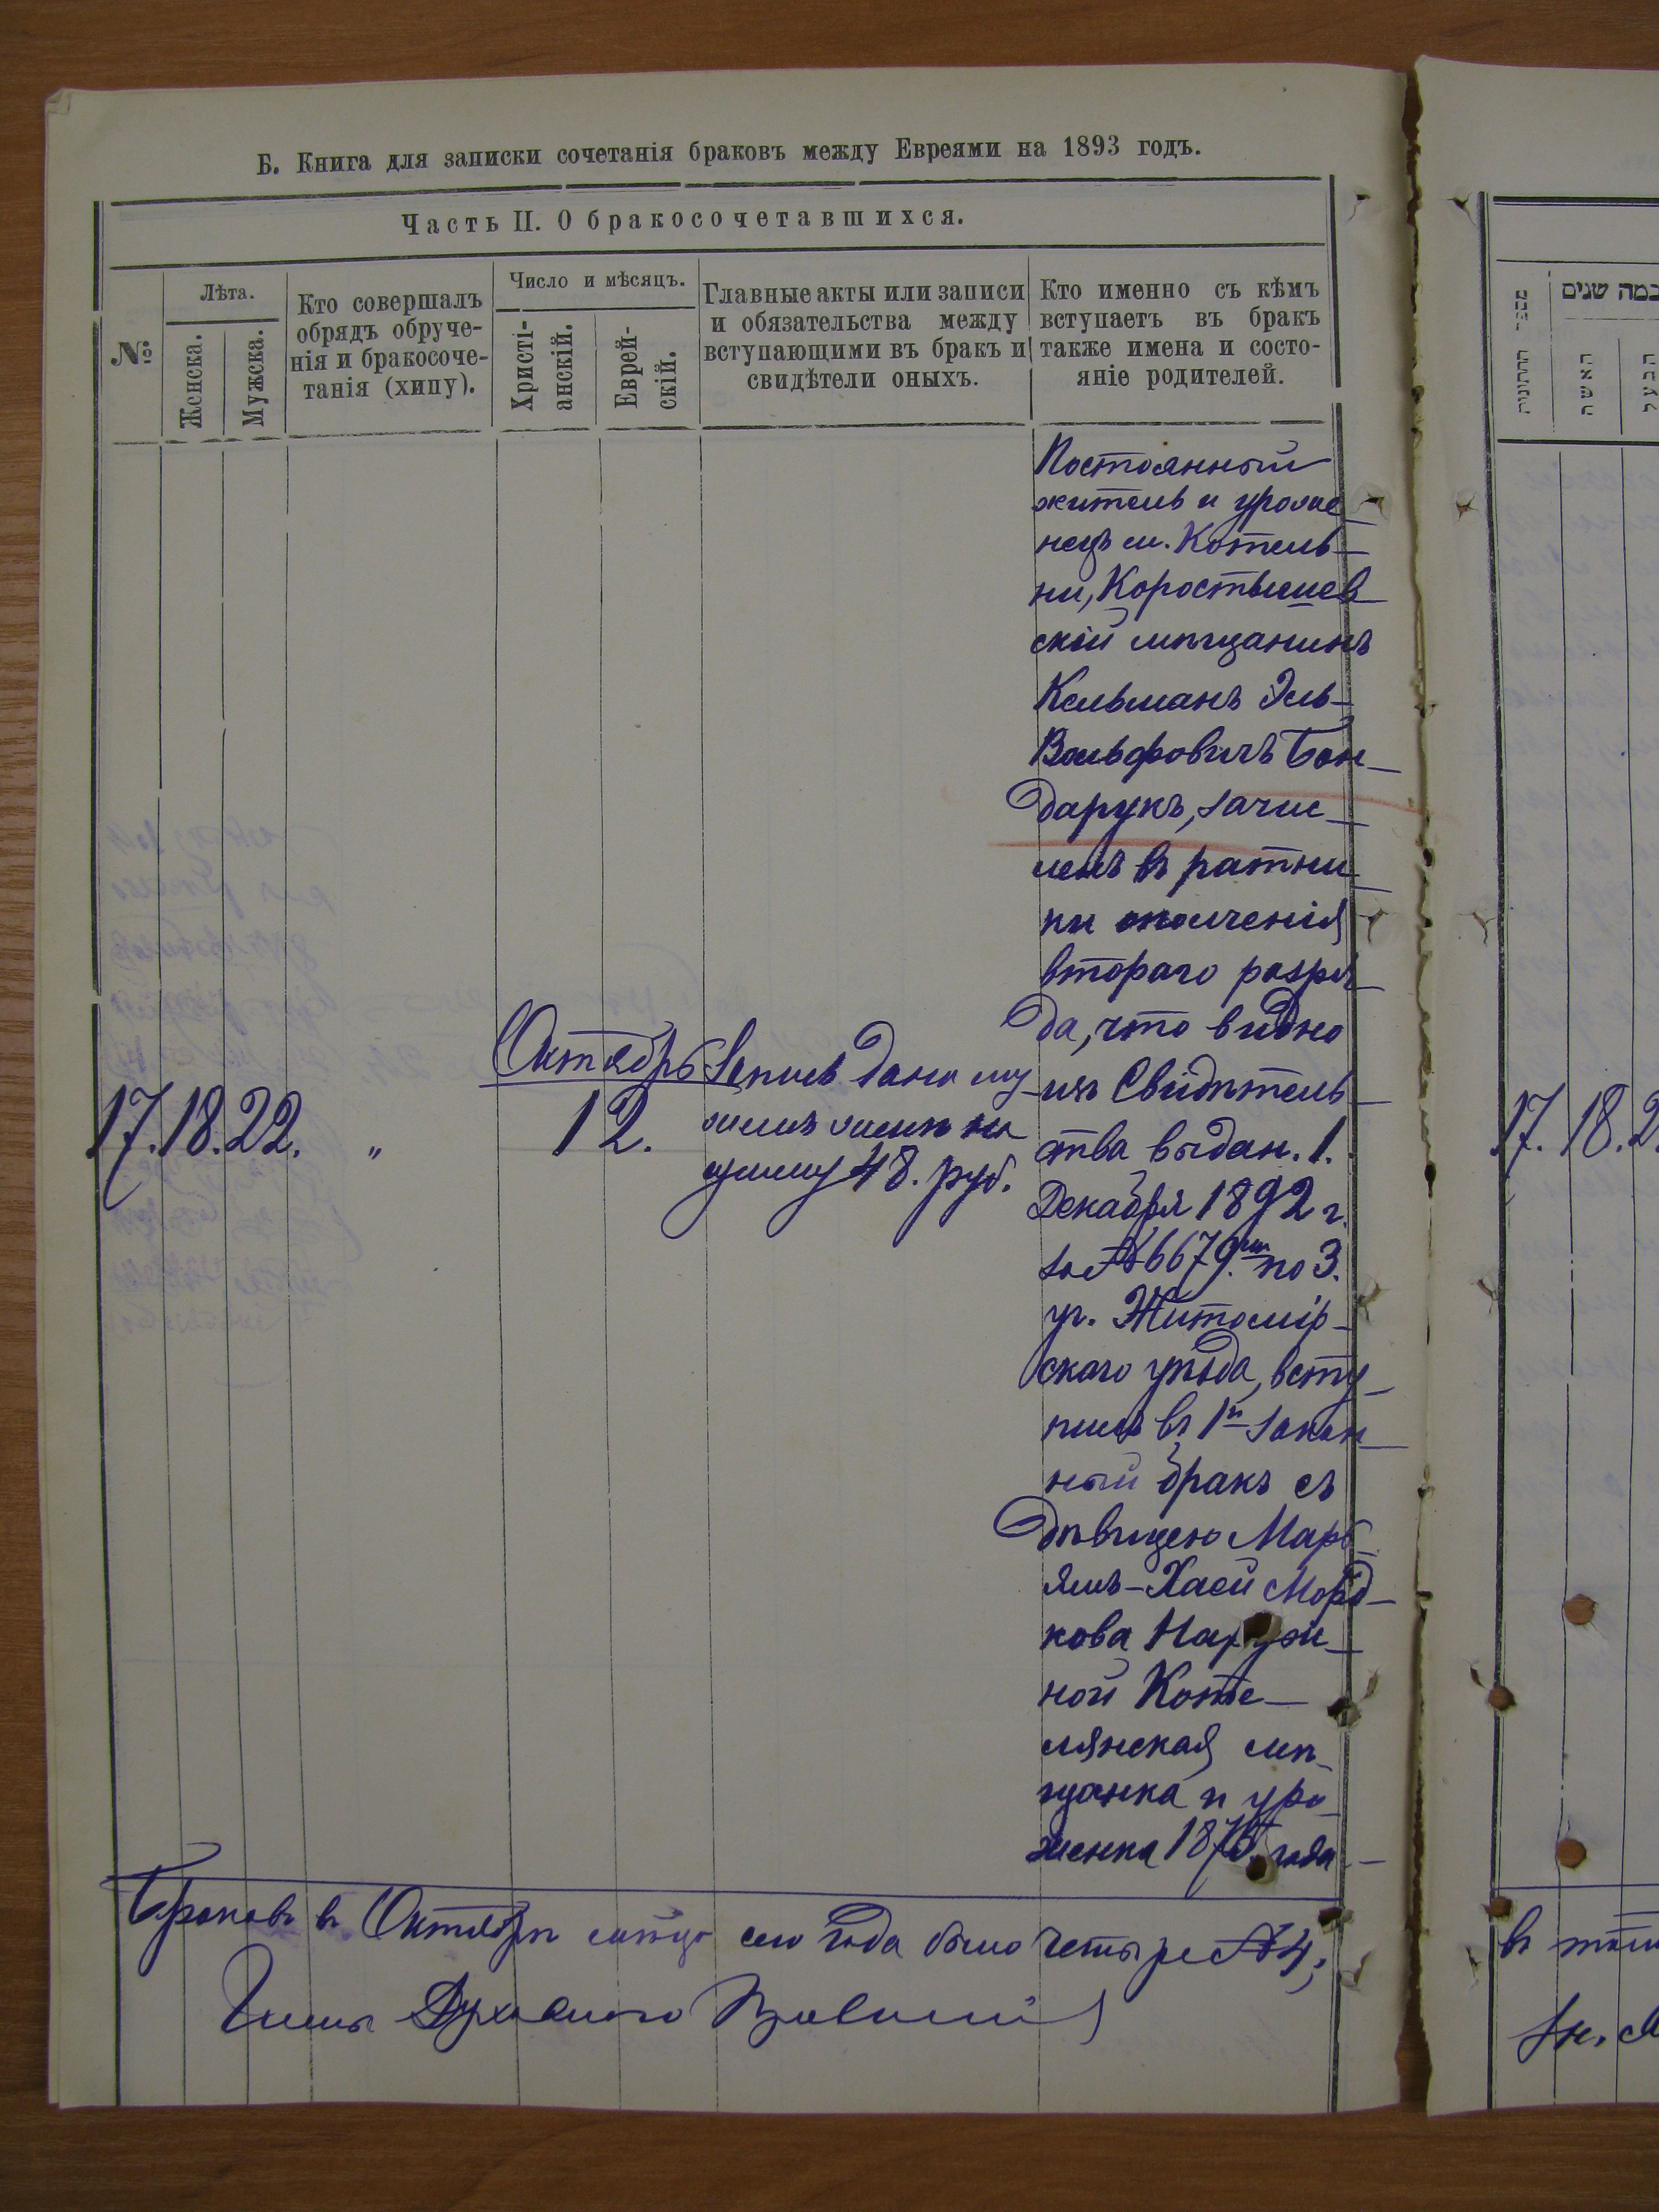 Б. Книга для записки сочетанія браковъ между Евреями на 1893 годъ.
Часть II. О бракосочетавшихся.
№
Лѣта.
Женска.
Мужска.
Кто совершалъ
обрядъ обруче-
нія и бракосоче-
танія (хипу).
Число и мѣсяцъ.
Христі-
анскій.
Еврей-
скій.
Главные акты или записи
и обязательства между
вступающими въ бракъ и
свидѣтели оныхъ.
Кто именно съ кѣмъ
вступаетъ въ бракъ
также имена и состо-
яніе родителей.
17. 18. 22. „
Октябрь
12.
Запись дана му
жемъ женѣ на
сумму 48. руб.
Постоянный
житель и уроже
нецъ м. Котель-
ни, Коростышев
скій мѣщанинъ
Кельманъ Эль-
Вольфовичъ Бон-
дарукъ, зачис-
ленъ въ ратни
ки ополченія
втораго разря
да, что видно
изъ Свидѣтель
ства выдан. 1.
Декабря 1892 г.
за № 6679. по 3.
уч. Житомір-
скаго уѣзда, всту-
пилъ въ 1й закон
ный бракъ съ
дѣвицею Марь
ямъ-Хаей Морд-
кова
ной Коте-
лянская мѣ
щанка и уро
женка года
Браковъ въ Октябрѣ мѣсяцѣ сего года было четыре № 4;
Члены Духовного Правленія
מספר החתונות
כמה שנים
האשה
הבעל
17. 18. 2